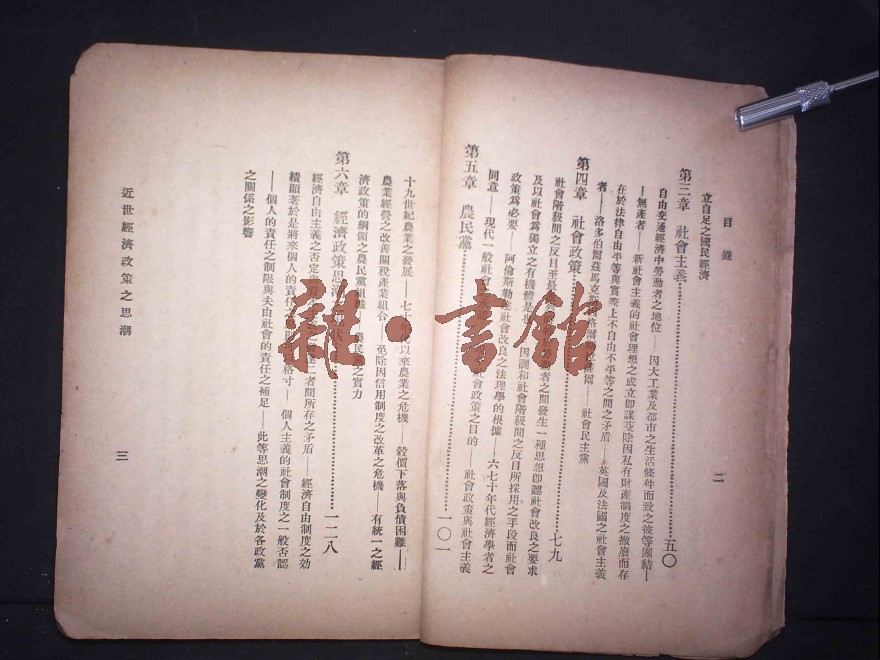 目錄
二
立自足之國民經濟
第三章 社會主義……五〇
自由交通經濟中勞動者之地位——因大工業及都市之生活條件而致之彼等團結—
—無產者——新社會主義的社會理想之成立卽謀芟除因私有財產制度之撤廢而存
在於法律自由平等與實際上不自由不平等之間之矛盾——英國及法國之社會主義
者——洛多伯爾茲馬克斯 格爾 爾——社會民主黨
第四章 社會政策……七九
社會階級間之反目至最 者之間發生一種思想卽認社會改良之要求
及以社會爲獨立之有機體是也 因調和社會階級間之反目所採用之手段而社會
政策爲必要——阿倫斯 社會改良之法理學的根據——六七十年代經濟學者之
同意——現代一般社會 社會政策之目的——社會政策與社會主義
第五章 農民黨……一〇一
十九世紀農業之發展——七十年代以來農業之危機——穀價下落與負債困難——
農業經營之改善關稅產業組合——免除因信用制度之改革之危機——有統一之經
濟政策的綱領之農民黨組織 農民黨之實力
第六章 經濟政策思潮 代……一二八
經濟自由主義之否定與 二者間所存之矛盾——經濟自由制度之功
績顯著於是將來個人的責任之 格寸——個人主義的社會制度之一般否認
——個人的責任之制限與夫由社會的責任之補足——此等思潮之變化及於各政黨
之關係之影響
近世經濟政策之思潮
三
雜·書館